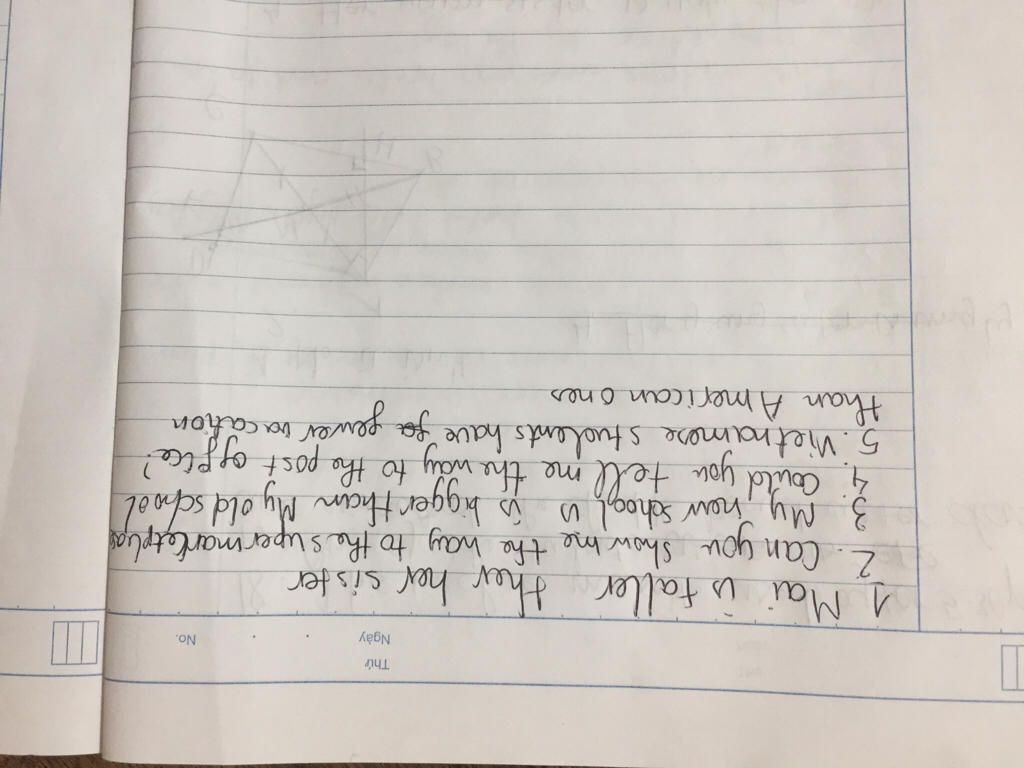 Thứ
Ngày No.
1 Mai is taller ther her sister
2. Can you show me the way to the supermarket please
3 My new school is bigger than My old school
4. Could you tell me the way to the post office?
5. Vietnamese students have fewer vacation
than American ones